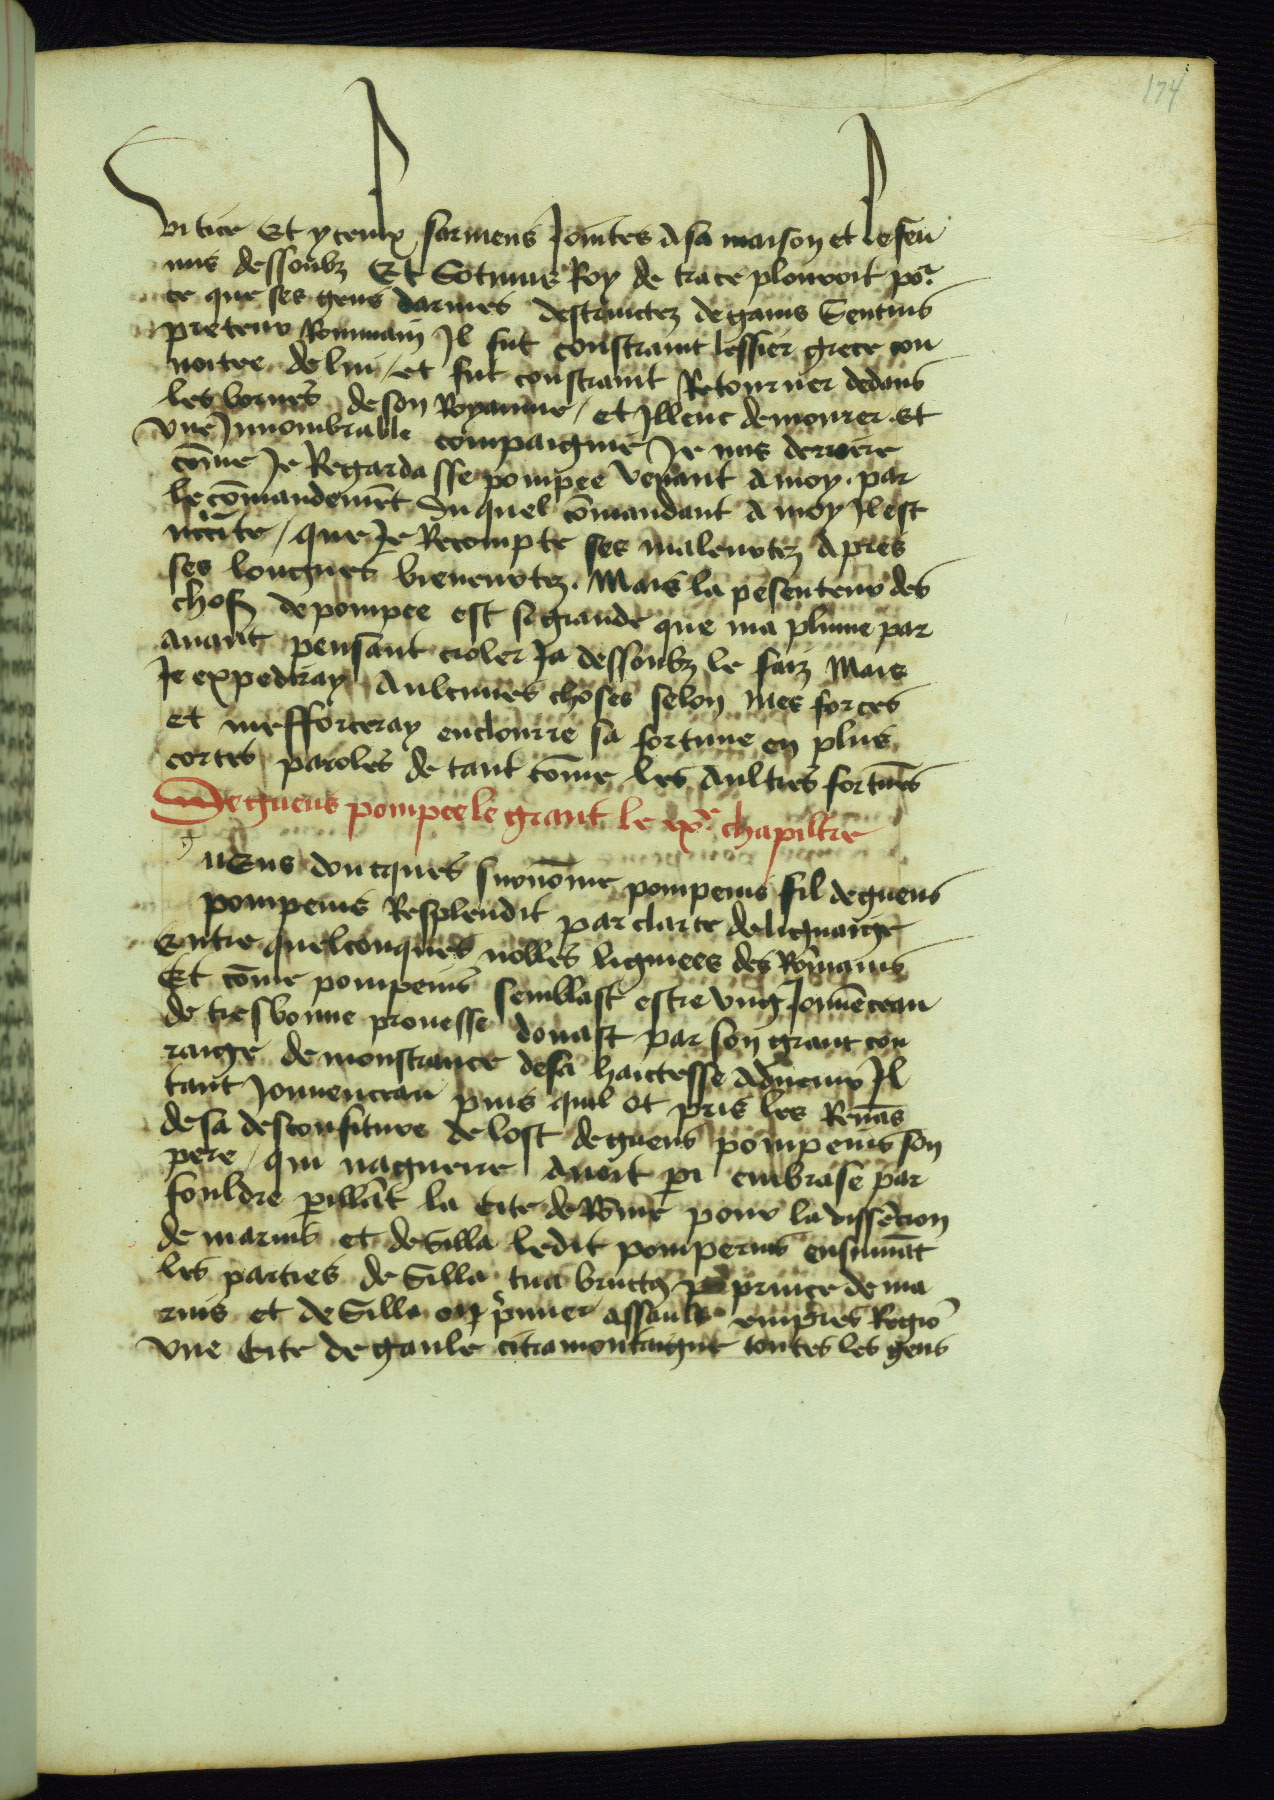 174
vitice Et yceulx sarmens Jointes a sa maison et le feu
mis dessoubz Et Sotimus Roy de trace plouroit po͛
ce que ses gens darmes destruictez de gaius Sentius
preteur Rommain Il fut constraint lessier grece con
noitee de lui / et fut constraint Retourner dedans
les bornes de son Royaume / et Jlleuc demourer Et
vne Jnnombrable compaignie Je mis derriere
cōme Je Regardasse pompee venant a moy . par
le cōmandemēt du quel cōmandant a moy Il est
/ que Je Recompte ses maleurtez apres
ses longues bieneurtez . Mais la pesenteur des
chos̄ de pompee est si grande que ma plume par
auant pensant croler Ja dessoubz le faiz Mais
Je expediray Aulcunes choses selon mes forces
et mefforceray enclourre sa fortune en plus
cortes paroles de tant cōme les aultres fortunes
De gneus pompee le grant le ixe chapiltre
g nEus doncques surnōme pompeius fil de gneus
pompeius Resplendit par clarte de lignaige
Entre quelconques nobles ligniees des Rōmains
Et cōme pompeius semblast estre vng Jouuēceau
de tresbonne prouesse donast par son grant cou
raige demonstrance de sa haictesse aduenir Il
tant Jouuenceau puis quil ot pris les
de sa desconfiture de lost de gneus pompeius son
pere / qui naguerre auoit embrase par
fouldre pillāt la Cite de Rōme pour la dissēcion
de marius et de Silla ledit pompeius ensuiuāt
les parties de Silla tua brutus prince de ma
rius et de Silla en p̄mier assault empres Regio
vne Cite de gaule citramontaigne toutes les gens